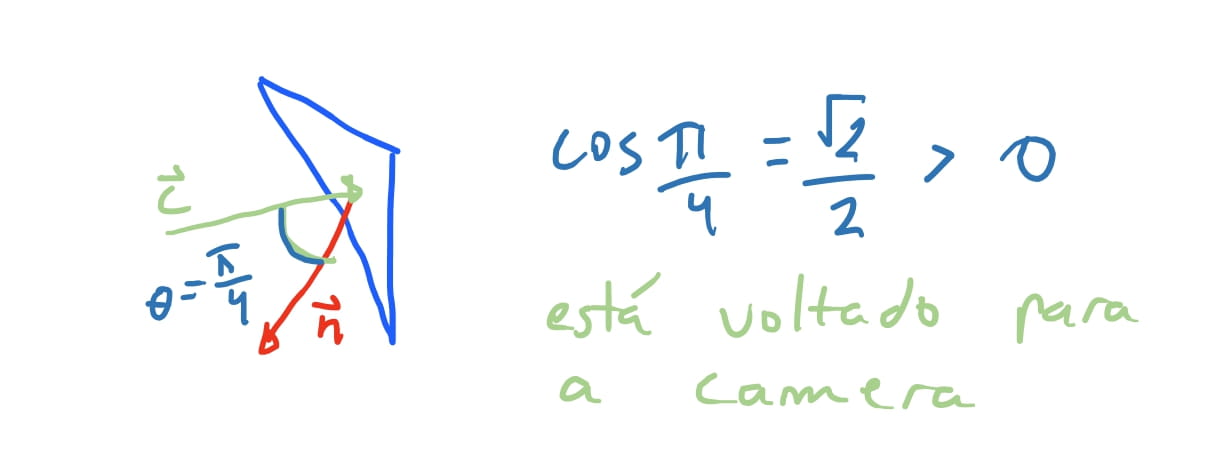 c⃗
θ = π/4
n⃗
cos π/4 = √2/2 > 0
está voltado para
a camera